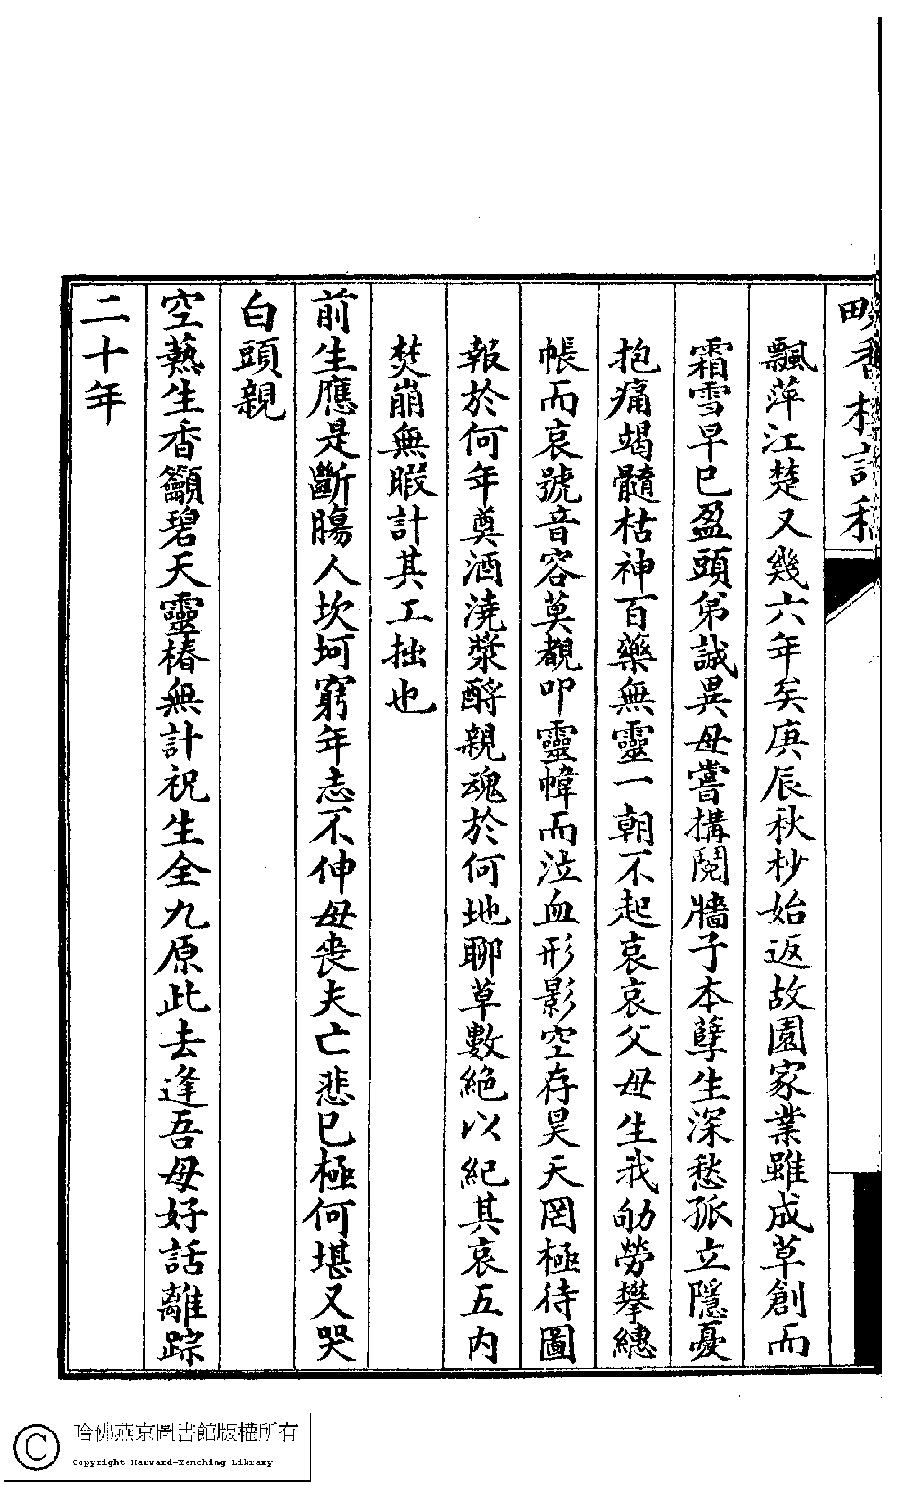 畹香樓詩稿
飄萍江楚又幾六年矣庚辰秋杪始返故園家業雖成草創而
霜雪早已盈頭弟誠異母嘗構鬩牆子本孽生深愁孤立隱憂
抱痛竭髓枯神百藥無靈一朝不起哀哀父母生我劬勞攀繐
帳而哀號音容莫覩叩靈幃而泣血形影空存昊天罔極待圖
報於何年奠酒澆漿酹親魂於何地聊草數絕以紀其哀五內
焚崩無暇計其工拙也
前生應是斷腸人坎坷窮年志不伸母喪夫亡悲已極何堪又哭
白頭親
空爇生香籲碧天靈椿無計祝生全九原此去逢吾母好話離踪
二十年
哈佛燕京圖書館版權所有
Copyright Harvard-Yenching Library